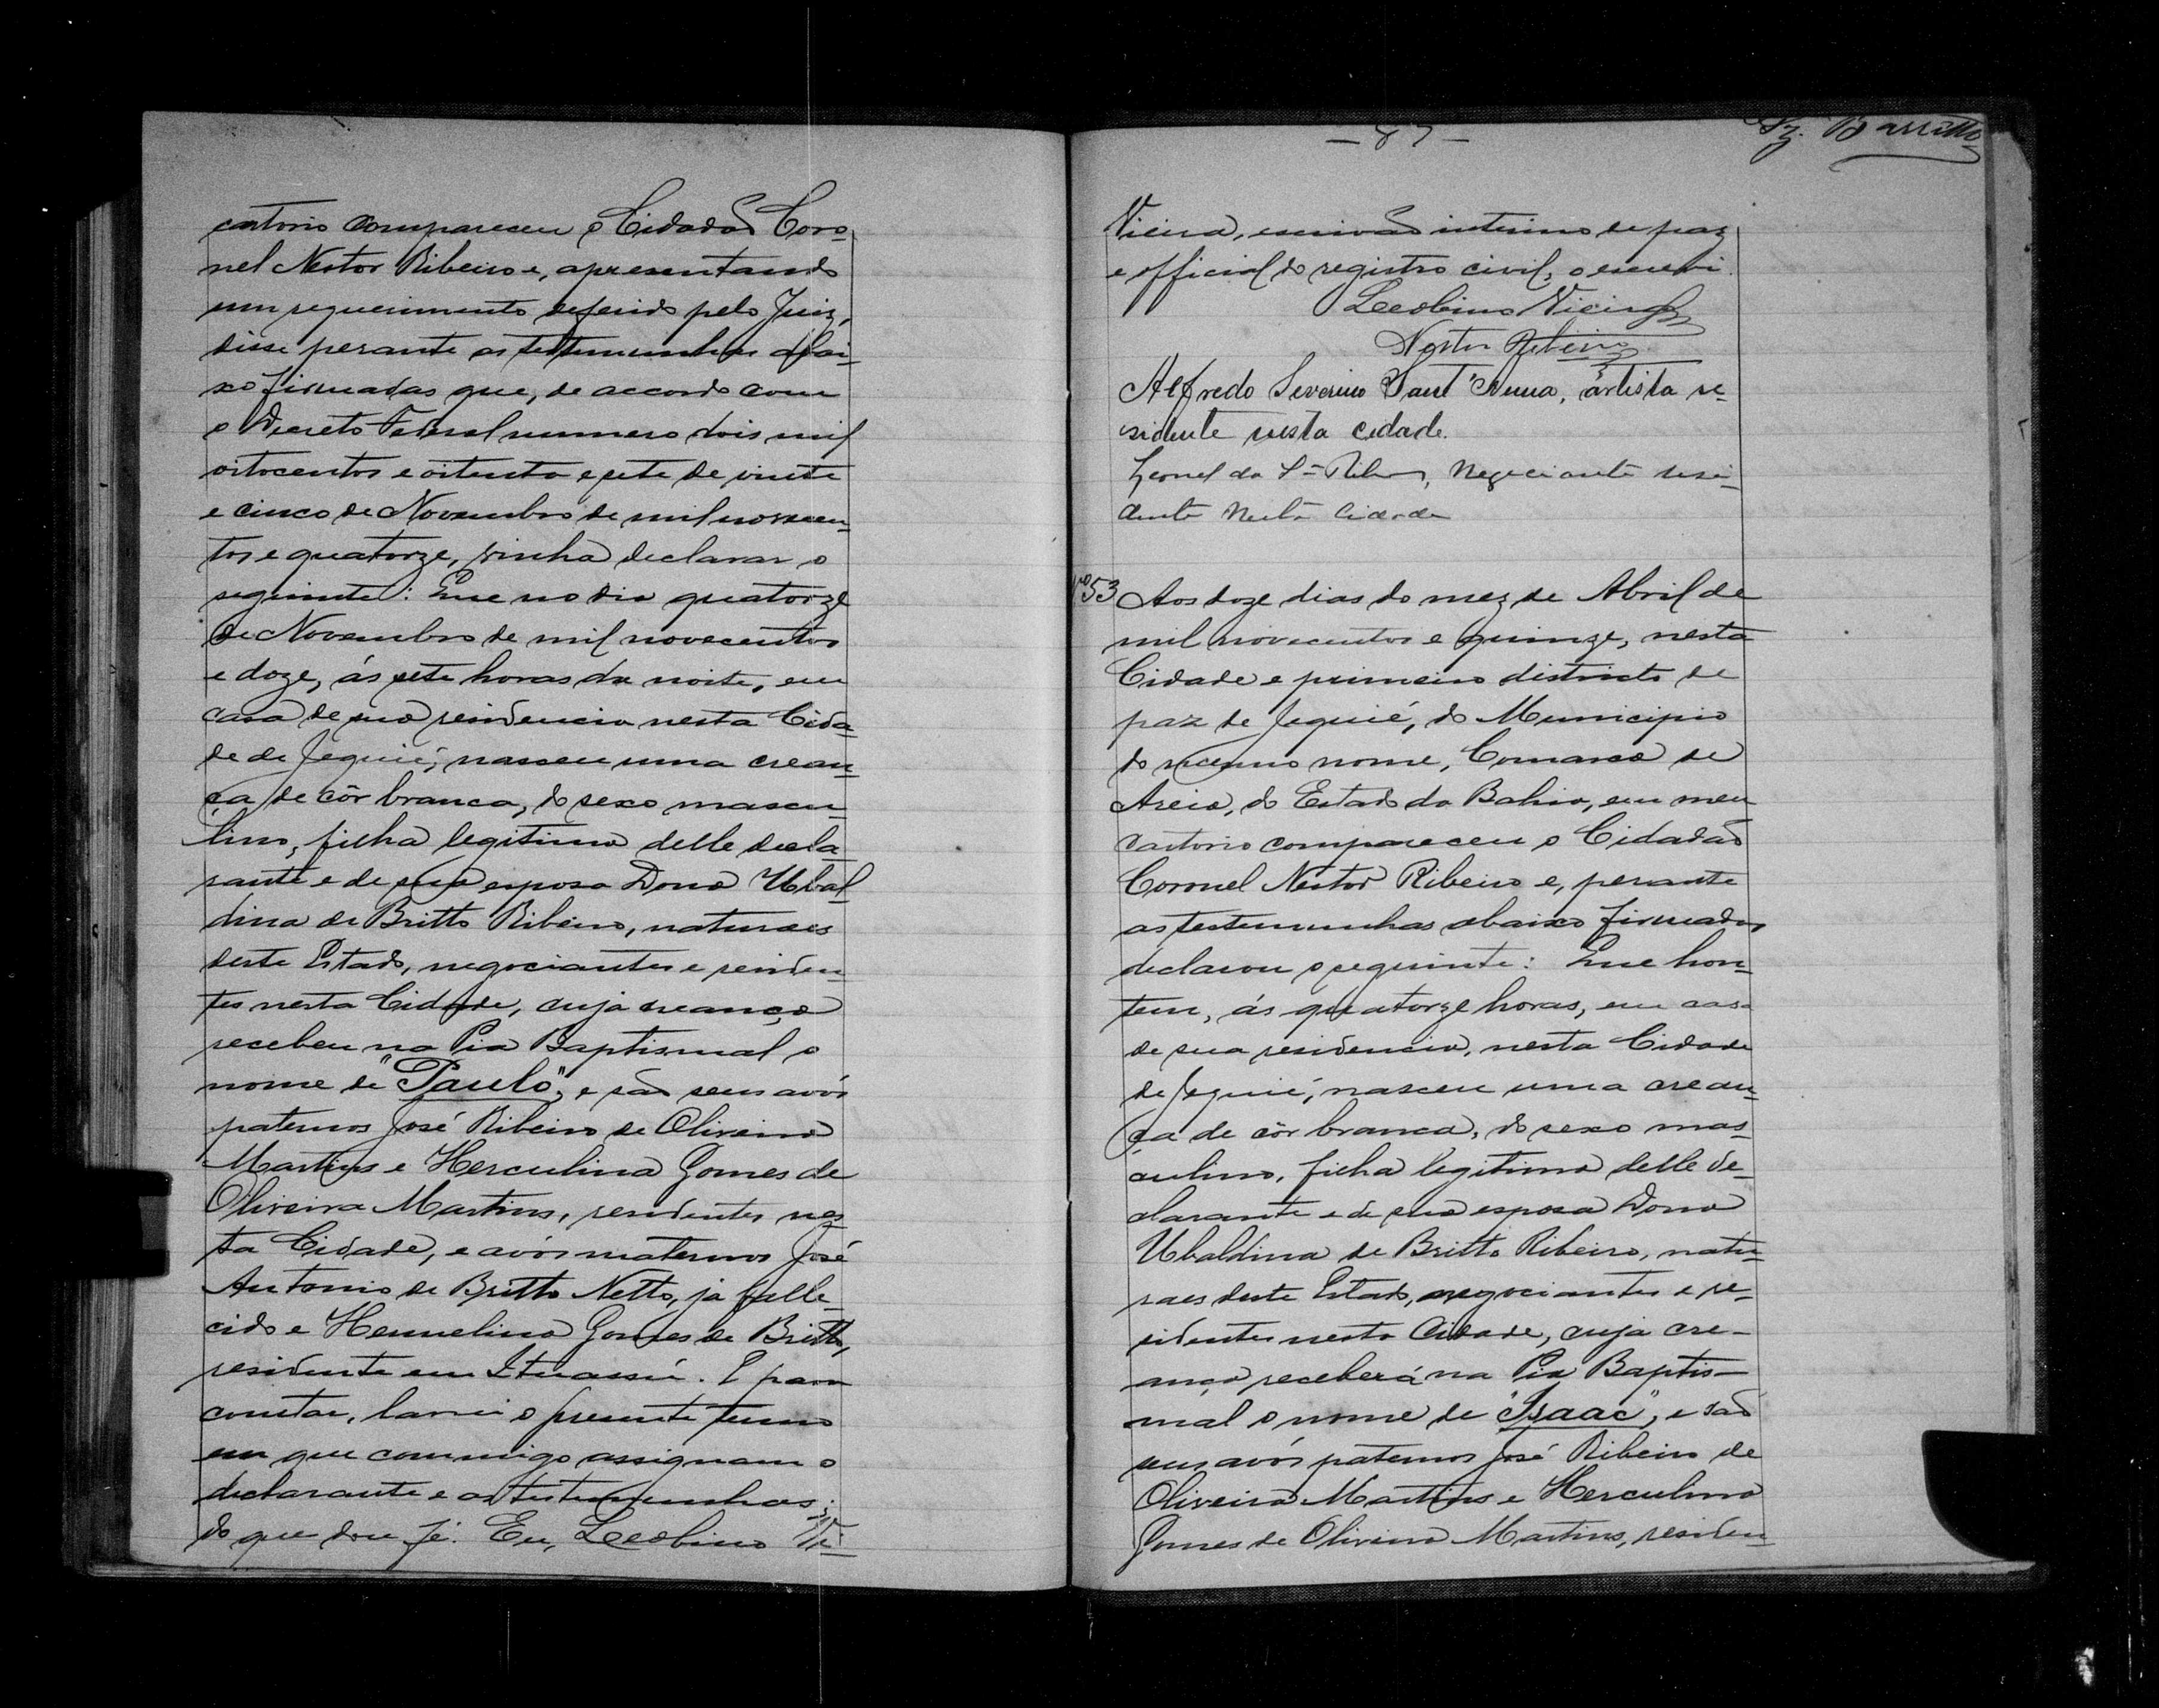 cartorio compareceu o Cidadão Coro-
nel Nestor Ribeiro e, apresentando
um requerimento deferido pelo Juiz,
disse perante as testemunhas abai-
xo firmadas que, de accordo com
o Decreto Federal numero dois mil
oitocentos e oitenta e sete de vinte
e cinco de Novembro de mil novecen-
tos e quatorze, vinha declarar o
seguinte: Que no dia quatorze
de Novembro de mil novecentos
e doze, ás sete horas da noite, em
casa de sua residencia nesta Cida-
de de Jequié, nasceu uma crean-
ça de côr branca, do sexo mascu-
lino, filha legitima delle decla-
rante e de sua esposa Dona Ubal-
dina de Britto Ribeiro, naturaes
deste Estado, negociantes e residen-
tes nesta Cidade, cuja creança
recebeu na Pia Baptismal o
nome de "Paulo", e são seus avós
paternos José Ribeiro de Oliveira
Martins e Herculina Gomes de
Oliveira Martins, residentes nes-
ta Cidade, e avós maternos José
Antonio de Britto Netto, já falle-
cido e Hermelina Gomes de Britto,
residente em Ituassú. E para
constar, lavrei o presente termo
em que commigo assignam o
declarante e as testemunhas;
do que dou fé. Eu, Leobino Vi-
- 87 -
Vieira, escrivão interino de paz
e official do registro civil, o escrevi.
Leobino Vieira
Nestor Ribeiro
Alfredo Severino Sant'Anna, artista re-
sidente nesta cidade.
Leonel da Sª Ribeiro, Negociante resi-
dente nesta Cidade
Nº 53 Aos doze dias do mez de Abril de
mil novecentos e quinze, nesta
Cidade e primeiro districto de
paz de Jequié, do Municipio
do mesmo nome, Comarca de
Areia, do Estado da Bahia, em meu
cartorio compareceu o Cidadão
Coronel Nestor Ribeiro e, perante
as testemunhas abaixo firmadas
declarou o seguinte: Que hon-
tem, ás quatorze horas, em casa
de sua residencia, nesta Cidade
de Jequié, nasceu uma crean-
ça de côr branca, do sexo mas-
culino, filha legitima delle de-
clarante e de sua esposa Dona
Ubaldina de Britto Ribeiro, natu-
raes deste Estado, negociantes e re-
sidentes nesta Cidade, cuja cre-
ança receberá na Pia Baptis-
mal o nome de "Isaac", e são
seus avós paternos José Ribeiro de
Oliveira Martins e Herculina
Gomes de Oliveira Martins, residen-